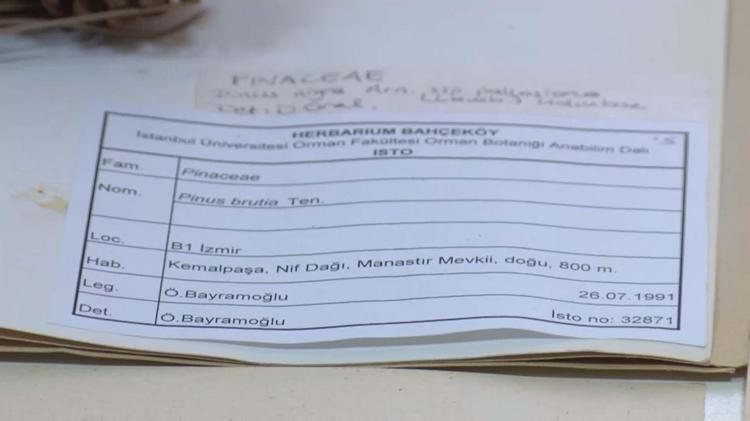 PINACEAE
Pinus nigra Arn. ssp pallasiana
Det: D.
HERBARIUM BAHÇEKÖY
İstanbul Üniversitesi Orman Fakültesi Orman Botaniği Anabilim Dalı
ISTO
Fam. Pinaceae
Nom. Pinus brutia Ten.
Loc. B1 İzmir
Hab. Kemalpaşa, Nif Dağı, Manastır Mevkii, doğu, 800 m.
Leg. Ö.Bayramoğlu 26.07.1991
Det. Ö.Bayramoğlu İsto no: 32871